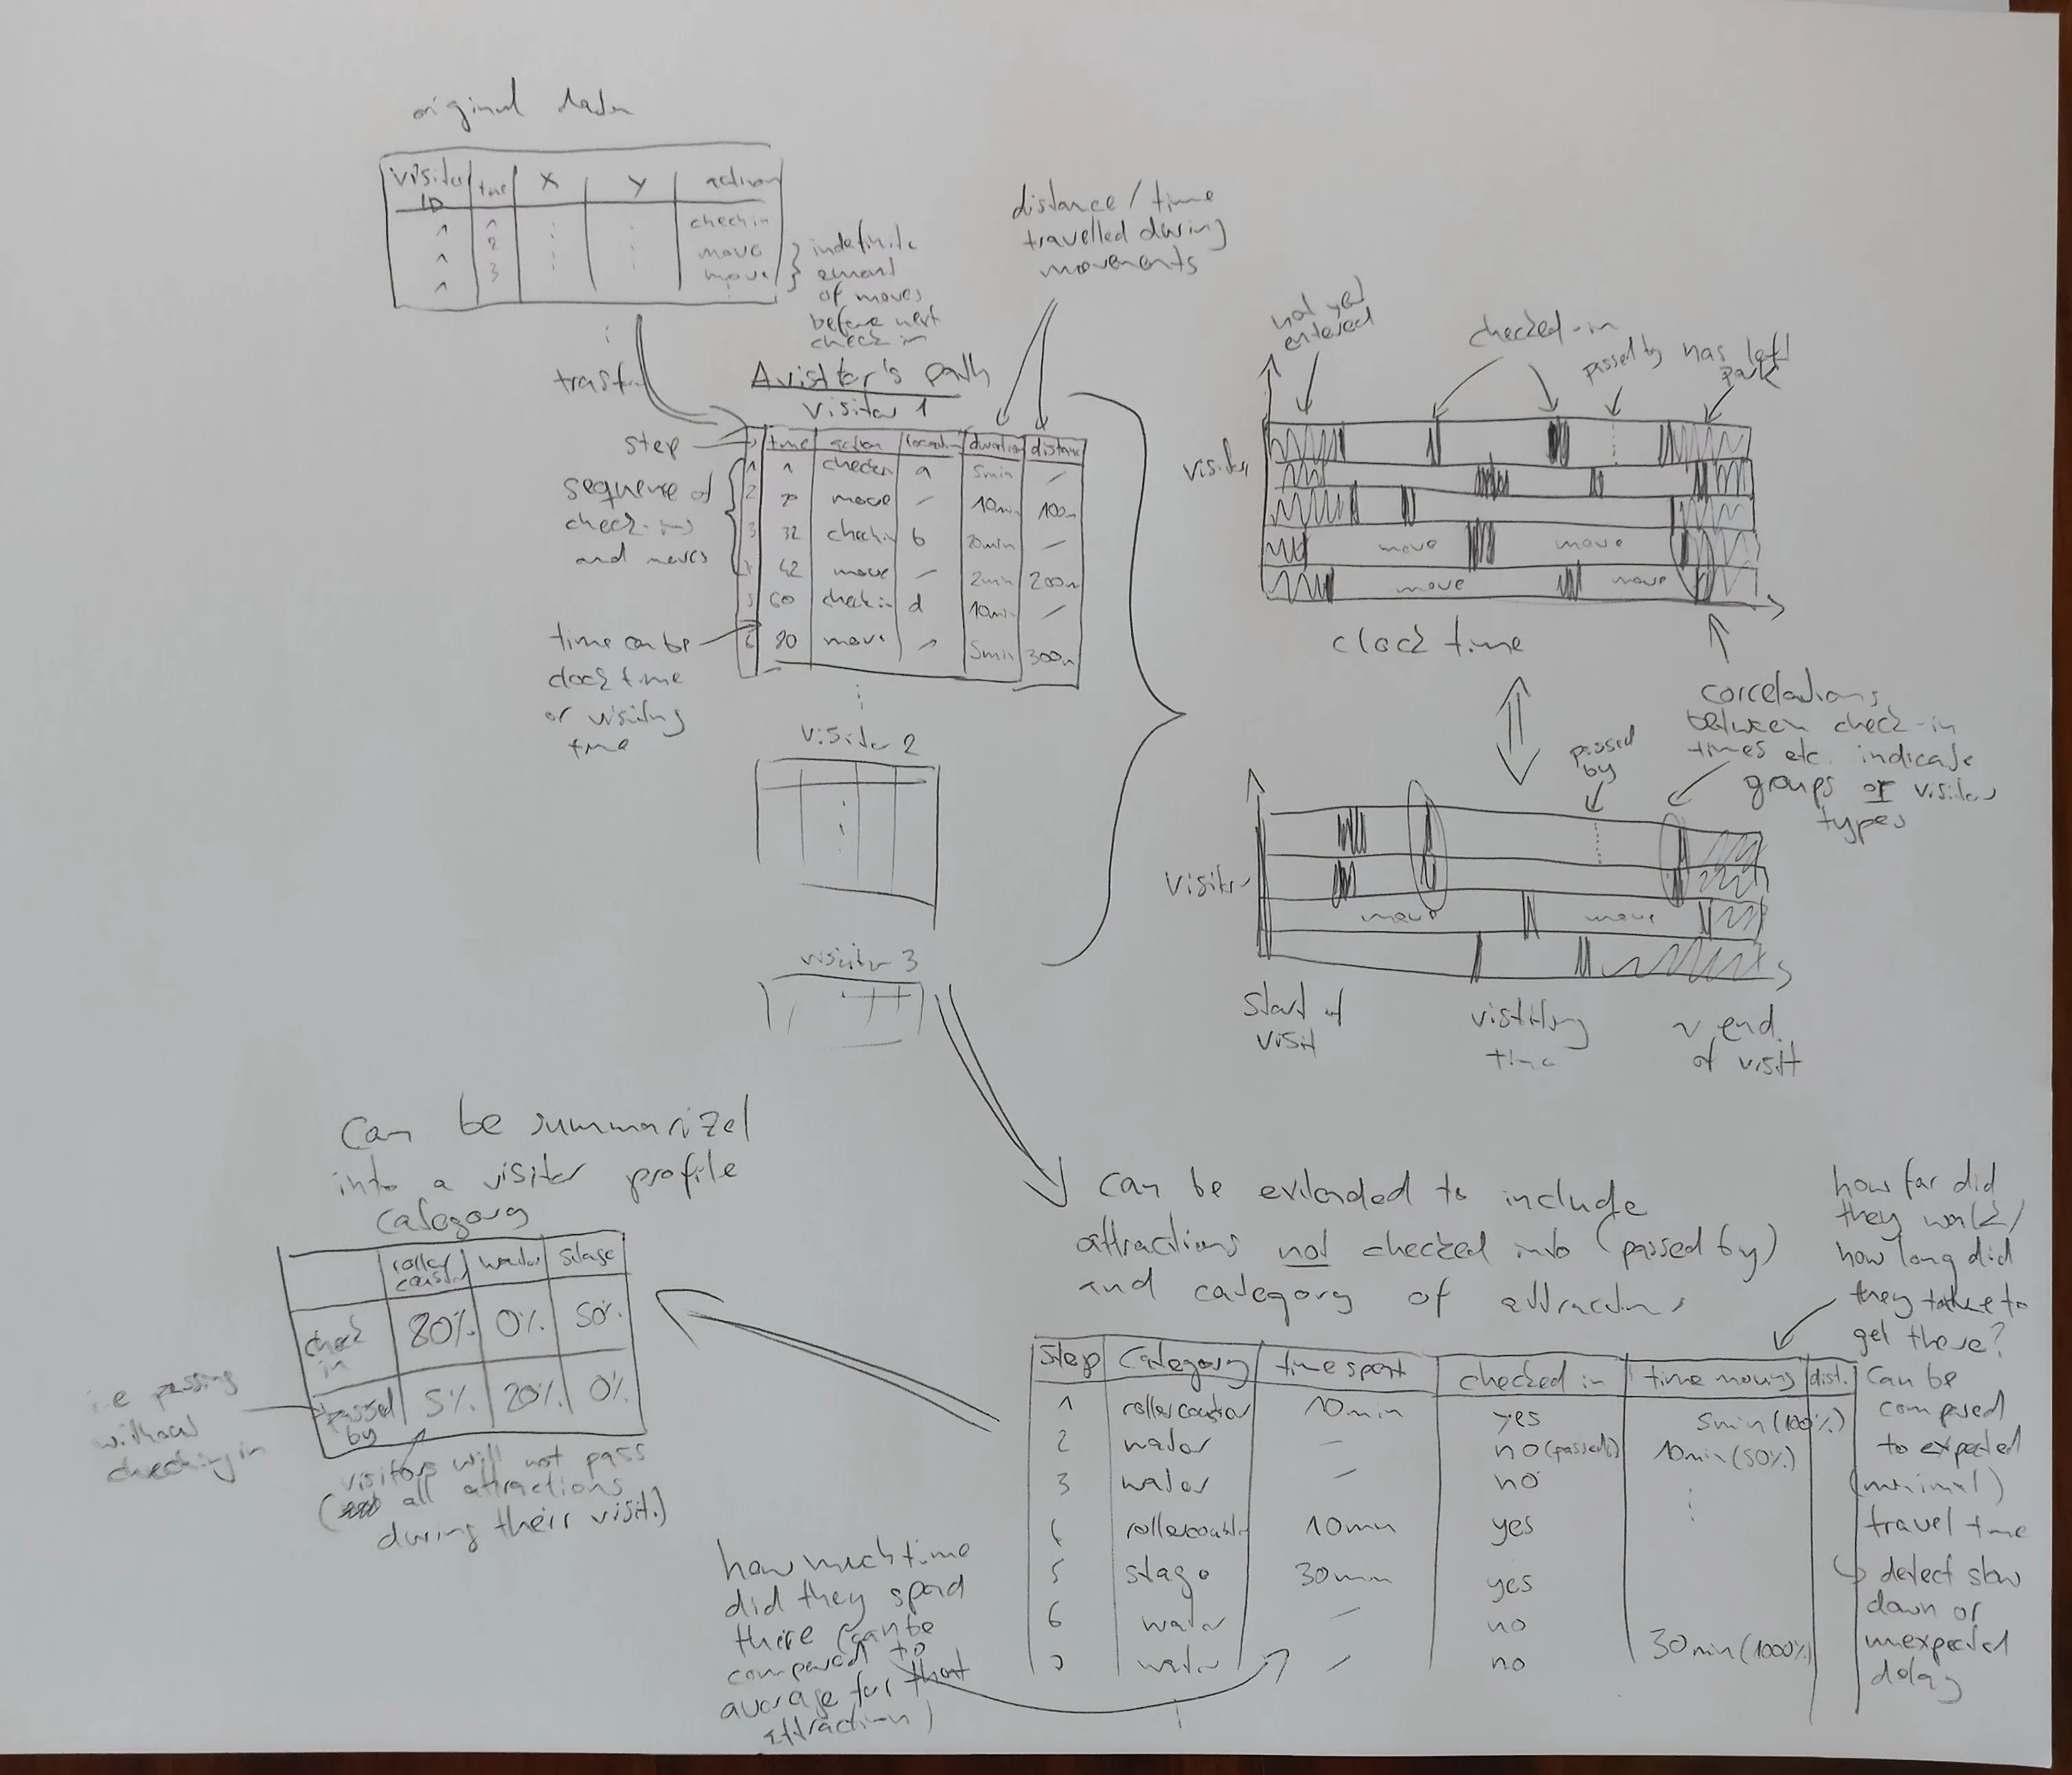 original data
visitor ID time X Y action
1 1 checkin
1 2 move
1 3 move
indefinite
amount
of moves
before next
check in
distance / time
travelled during
movements
A visitor's path
visitor 1
step
time action location duration distance
1 1 checkin a 5min /
2 move / 10min 100m
3 32 checkin b 20min /
42 move / 2min 200m
5 60 checkin d 10min /
6 80 move 5min 300m
sequence of
check-ins
and moves
time can be
clock time
or visiting
time
visitor 2
visitor 3
not yet
entered
checked-in
passed by
has left
park
visitor
move move
move move
clock time
correlations
between check-in
times etc. indicate
groups or visitor
types
passed
by
visitor
move move
start of
visit
visiting
time
~ end
of visit
can be summarized
into a visitor profile
category
roller coaster water stage
check in 80% 0% 50%
passed by 5% 20% 0%
i.e passing
without
checking in
visitors will not pass
( all attractions
during their visit.)
can be extended to include
attractions not checked into (passed by)
and category of attractions
how far did
they walk/
how long did
they take to
get there?
step category time spent checked in time moving dist.
1 rollercoaster 10min yes 5min (100%)
2 water – no (passed) 10min (50%)
3 water / no
rollercoaster 10min yes
5 stage 30min yes
6 water / no
water / no 30min (1000%)
can be
compared
to expected
(minimal)
travel time
↳ detect slow
down or
unexpected
delay
how much time
did they spend
there (can be
compared to
average for that
attraction)